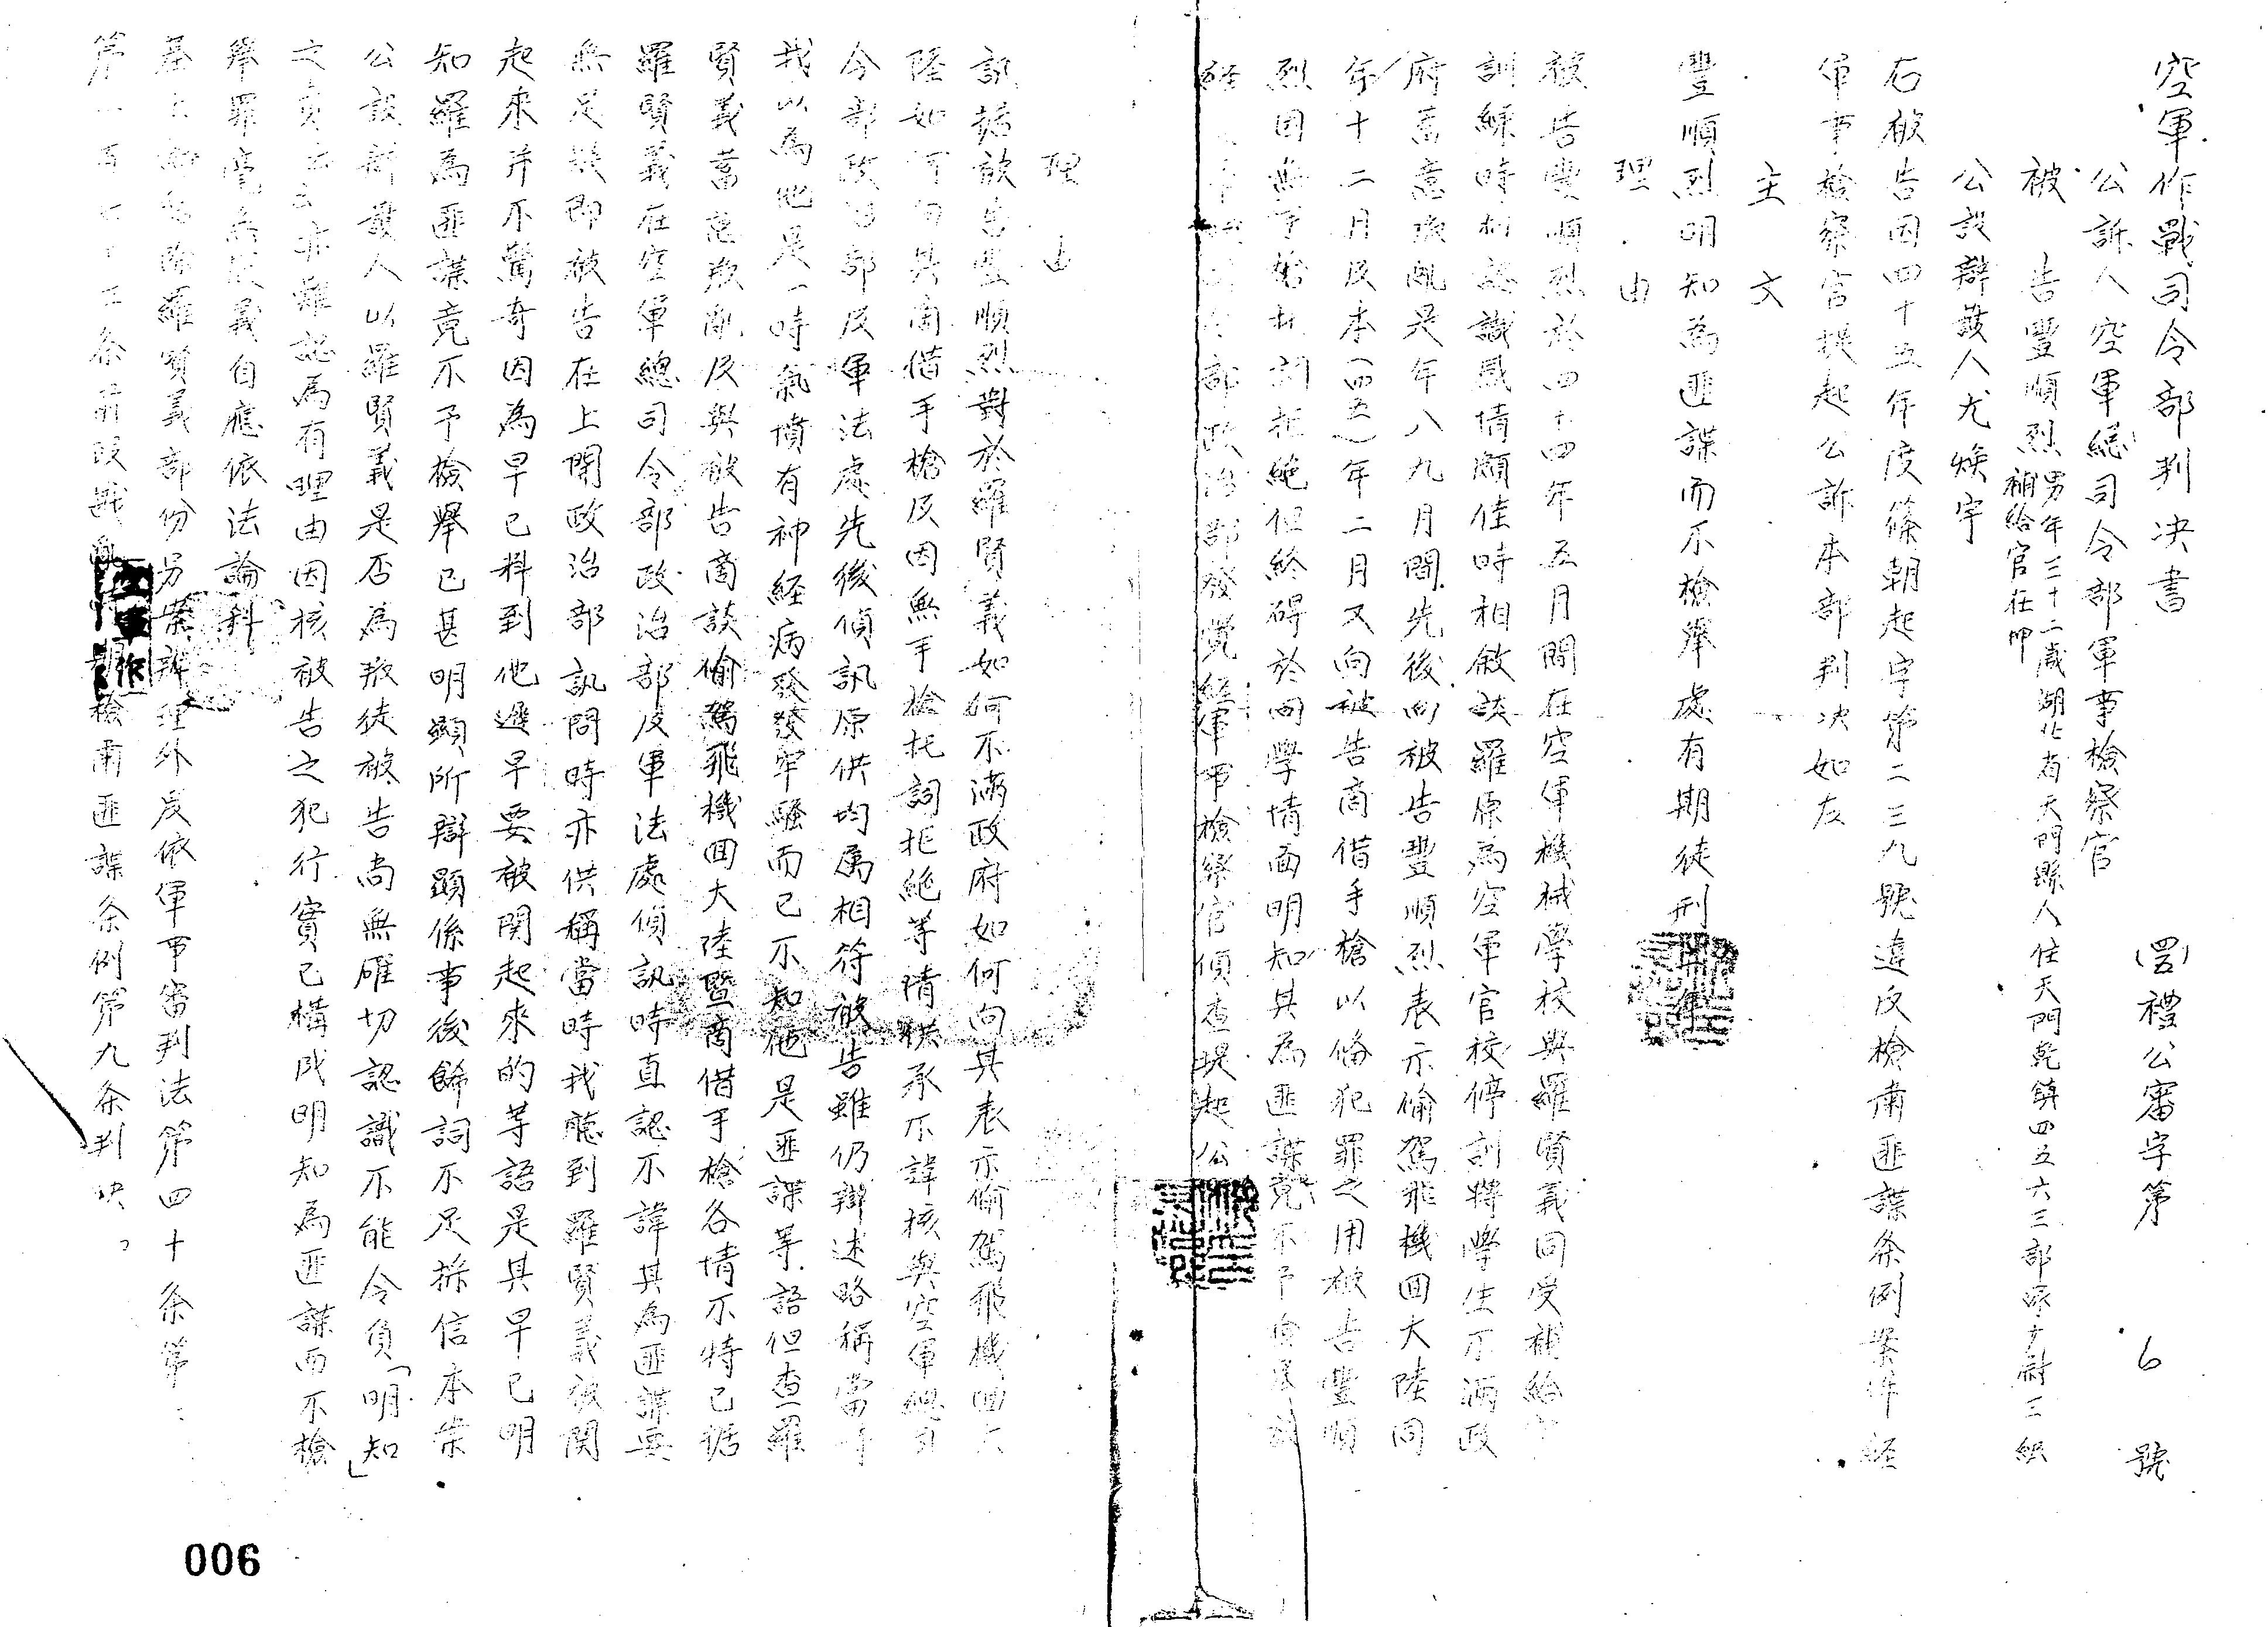 空軍作戰司令部判決書
禮公審字第 6 號
公訴人空軍總司令部軍事檢察官
被 告豐順烈 男年三十二歲湖北省天門縣人住天門乾鎮四五六三部隊少尉三級補給官在押
公設辯護人尤煥宇
右被告因四十五年度篠朝起字第二三九號違反檢肅匪諜条例案件経
軍事檢察官提起公訴本部判決如左
主文
豐順烈明知為匪諜而不檢舉處有期徒刑年
理由
被告豐順烈於四十四年五月間在空軍機械學校與羅賢義同受補給
訓練時相認識感情頗佳時相敘談羅原為空軍官校停訓轉學生不滿政
府蓄意叛亂是年八九月間先後向被告豐順烈表示偷駕飛機回大陸同
年十二月及本(四五)年二月又向被告商借手槍以備犯罪之用被告豐順
烈因無手槍故託詞拒絕但終碍於同學情面明知其為匪諜竟不予
経部政治部發覺経軍事檢察官偵查提起公
理由
訊據被告豐順烈對於羅賢義如何不滿政府如何向其表示偷駕飛機回大
陸如何向其商借手槍及因無手槍託詞拒絕等情供承不諱核與空軍總司
令部政治部及軍法處先後偵訊原供均屬相符被告雖仍辯述略稱當時
我以為他是一時氣憤有神経病發發牢騷而已不知他是匪諜等語但查羅
賢義蓄意叛亂及與被告商談偷駕飛機回大陸暨商借手槍各情不特已據
羅賢義在空軍總司令部政治部及軍法處偵訊時直認不諱其為匪諜要
無足疑即被告在上開政治部訊問時亦供稱當時我聽到羅賢義被関
起來并不驚奇因為早已料到他遲早要被関起來的等語是其早已明
知羅為匪諜竟不予檢舉已甚明顯所辯顯係事後飾詞不足採信本案
公設辯護人以羅賢義是否為叛徒被告尚無確切認識不能令負「明知」
之責云云亦難認為有理由因核被告之犯行實已構成明知為匪諜而不檢
舉罪毫無疑義自應依法論科
基上論結除羅賢義部份另案辦理外爰依軍事審判法第四十条第
第一百七十三条前段戡亂時期檢肅匪諜条例第九条判決
006